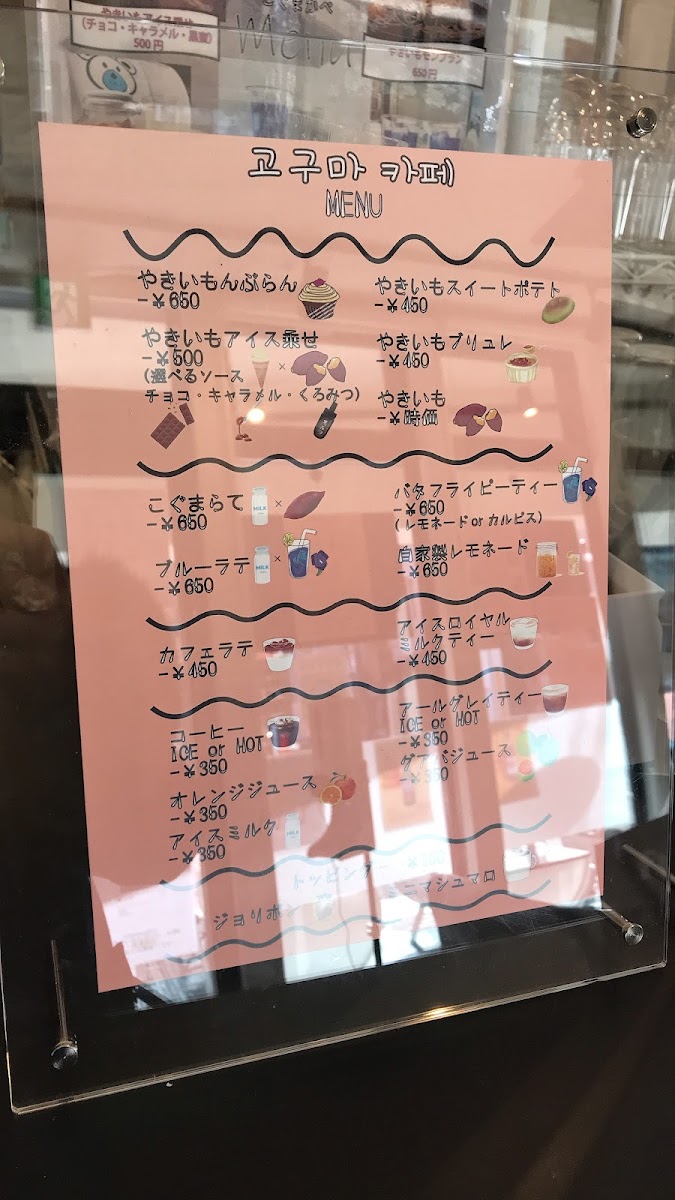 やきいもアイス乗せ
(チョコ・キャラメル・黒蜜)
500円
Menu
やきいもモンブラン
650円
고구마 카페
MENU
やきいもんぶらん
-¥650
やきいもスイートポテト
-¥450
やきいもアイス乗せ
-¥500
(選べるソース
チョコ・キャラメル・くろみつ)
やきいもブリュレ
-¥450
やきいも
-¥時価
こぐまらて
-¥650
MILK
バタフライピーティー
-¥650
(レモネードorカルピス)
ブルーラテ
-¥650
MILK
自家製レモネード
-¥650
カフェラテ
-¥450
アイスロイヤル
ミルクティー
-¥450
コーヒー
ICE or HOT
-¥350
アールグレイティー
ICE or HOT
-¥350
オレンジジュース
-¥350
グアバジュース
-¥350
アイスミルク
-¥350
MILK
トッピング
ミニマシュマロ